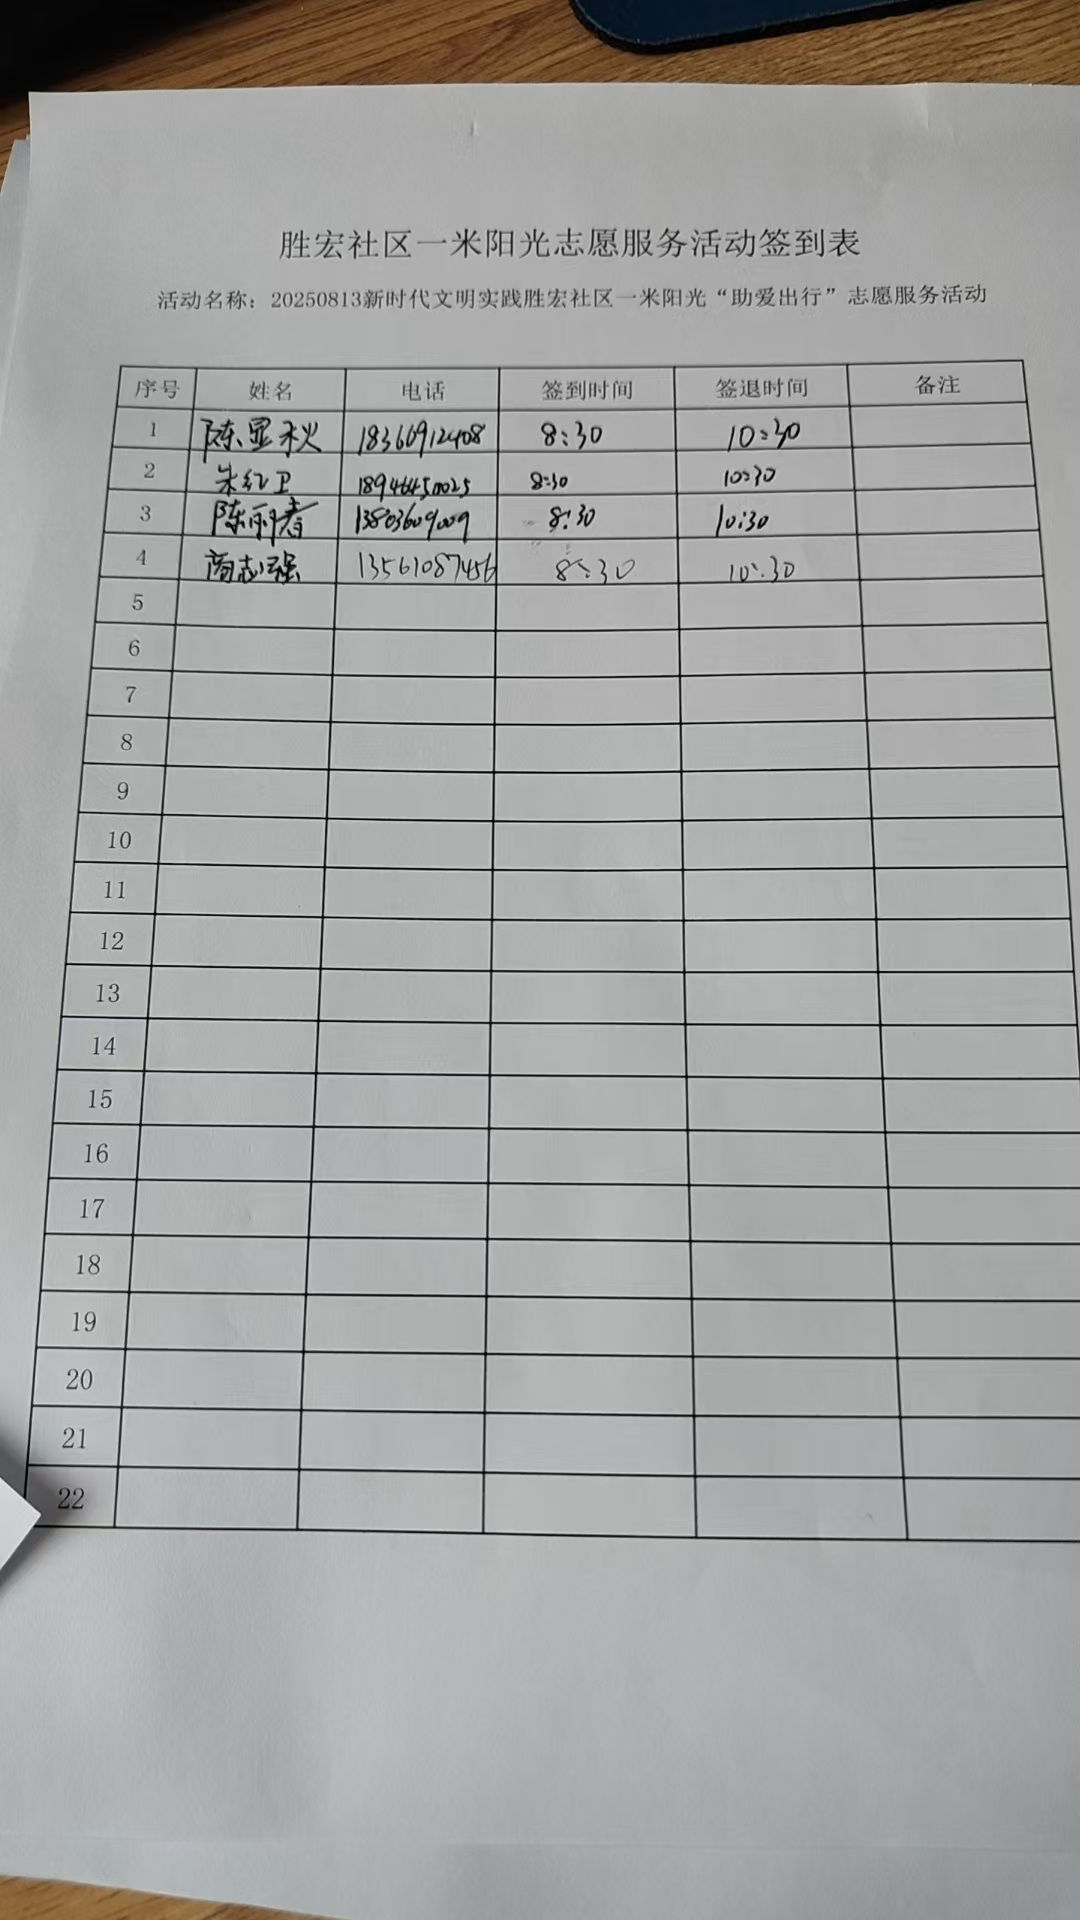 胜宏社区一米阳光志愿服务活动签到表
活动名称：20250813新时代文明实践胜宏社区一米阳光“助爱出行”志愿服务活动
序号 姓名 电话 签到时间 签退时间 备注
1 陈显秋 18366912408 8:30 10:30
2 朱红卫 8:30 10:30
3 陈丽春 13803609009 8:30 10:30
4 商志强 13561087456 8:30 10:30
5
6
7
8
9
10
11
12
13
14
15
16
17
18
19
20
21
22